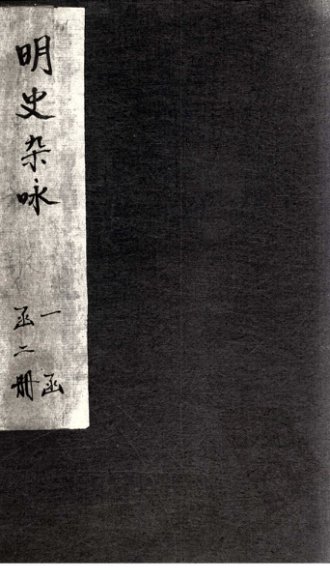 明史杂咏
一函
函二册